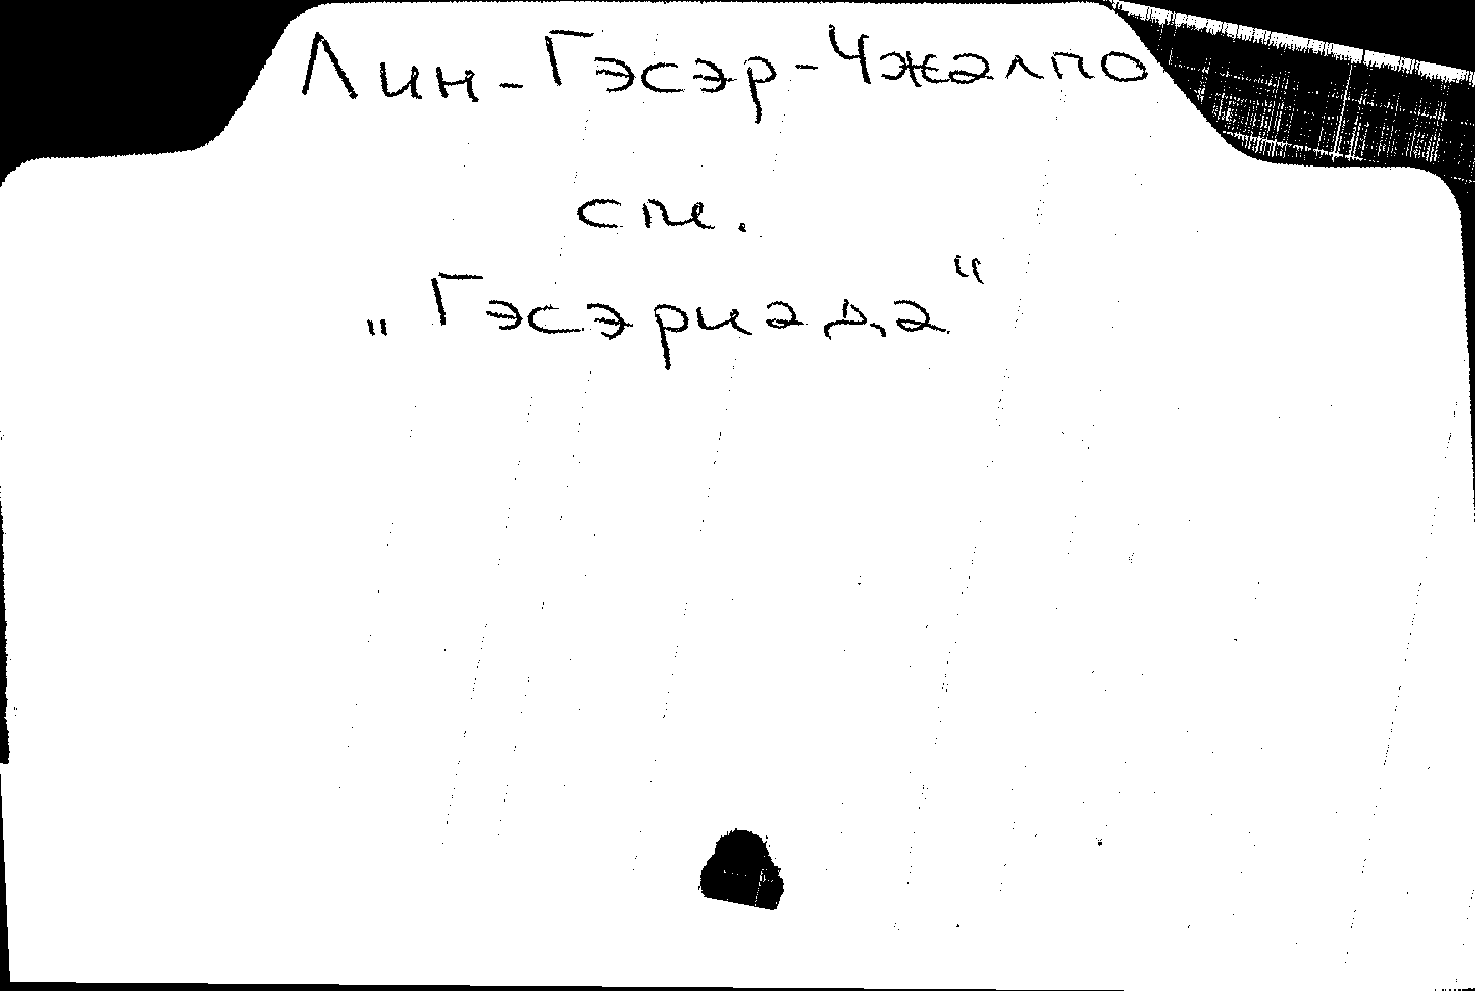 Лин-Гэсэр-Чжалпо
см.
„Гэсэриада“